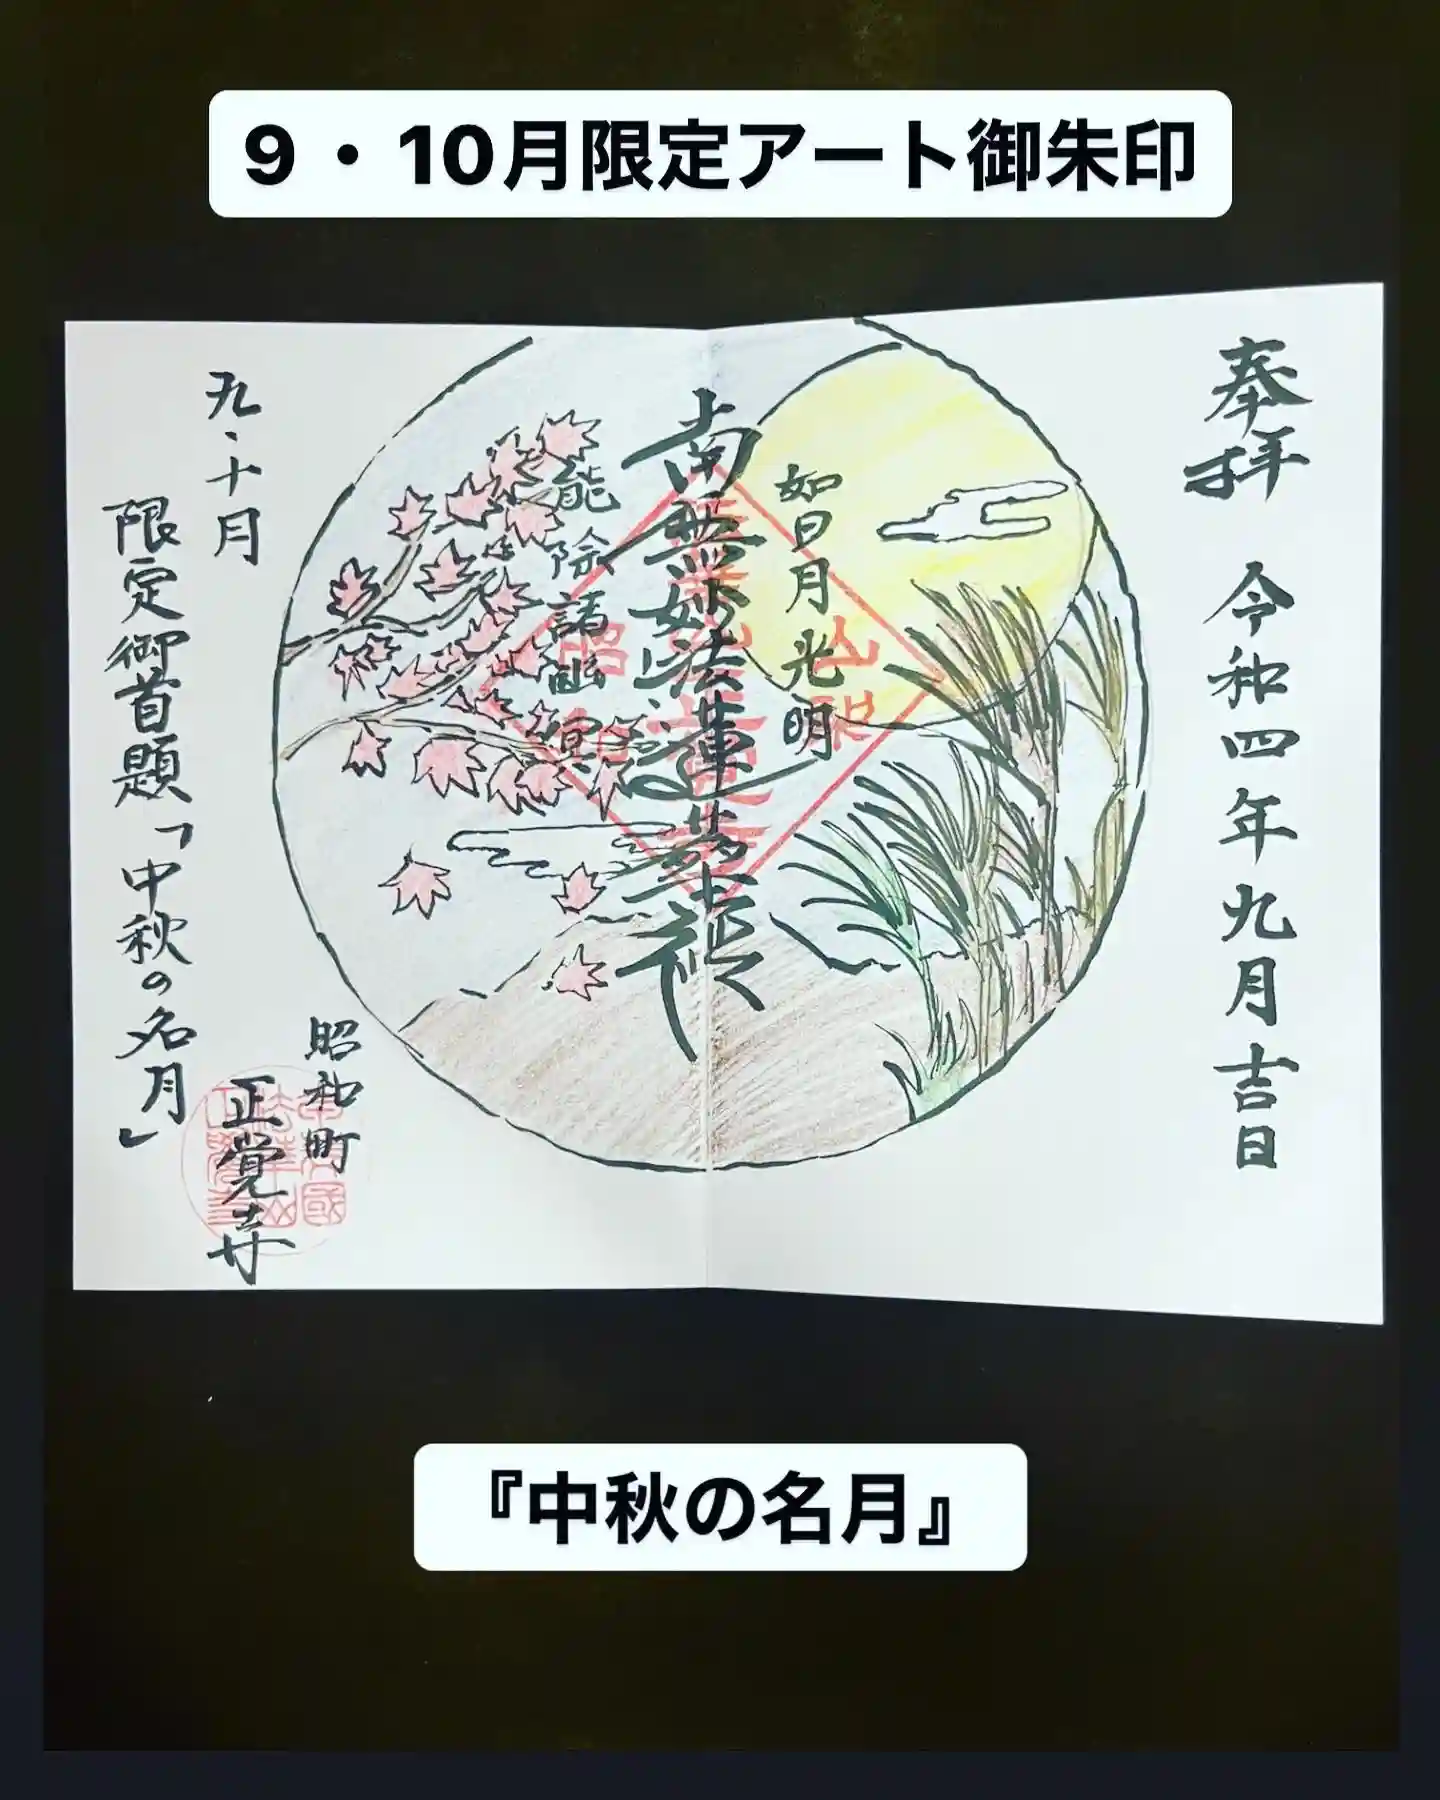 9・10月限定アート御朱印
奉拝 令和四年九月吉日
如日月光明
南無妙法蓮華経
能除諸幽冥
九、十月
限定御首題「中秋の名月」
昭和町
正覚寺
『中秋の名月』